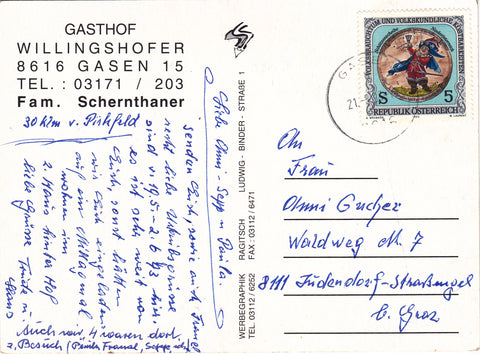 GASTHOF
WILLINGSHOFER
8616 GASEN 15
TEL.: 03171 / 203
Fam. Schernthaner
30 klm v. Pirkfeld
Liebe Anni - Sepp u Paula.
senden Euch, sowie auch
recht liebe Urlaubsgrüsse
sind v. 19.5.-2.6.93 hier,
es ist sehr weit von
Euch, sonst hätten
wir Euch eingeladen
auf ein Mittagmal
wohnen im
2. Haus hinter Hof
liebe Grüsse Trude u.
Hans
Auch wir 4 waren dort.
z. Besuch (
WERBEGRAPHIK RAGITSCH LUDWIG - BINDER - STRAßE 1
TEL. 03112 / 6252 FAX: 03112 / 6471
VOLKSBRAUCHTUM UND VOLKSKUNDLICHE KOSTBARKEITEN
Niederösterreich
S 5
REPUBLIK ÖSTERREICH
GASEN
An
Frau
Anni Gucher
Waldweg No. 7
8111 Judendorf-Straßengel
b. Graz